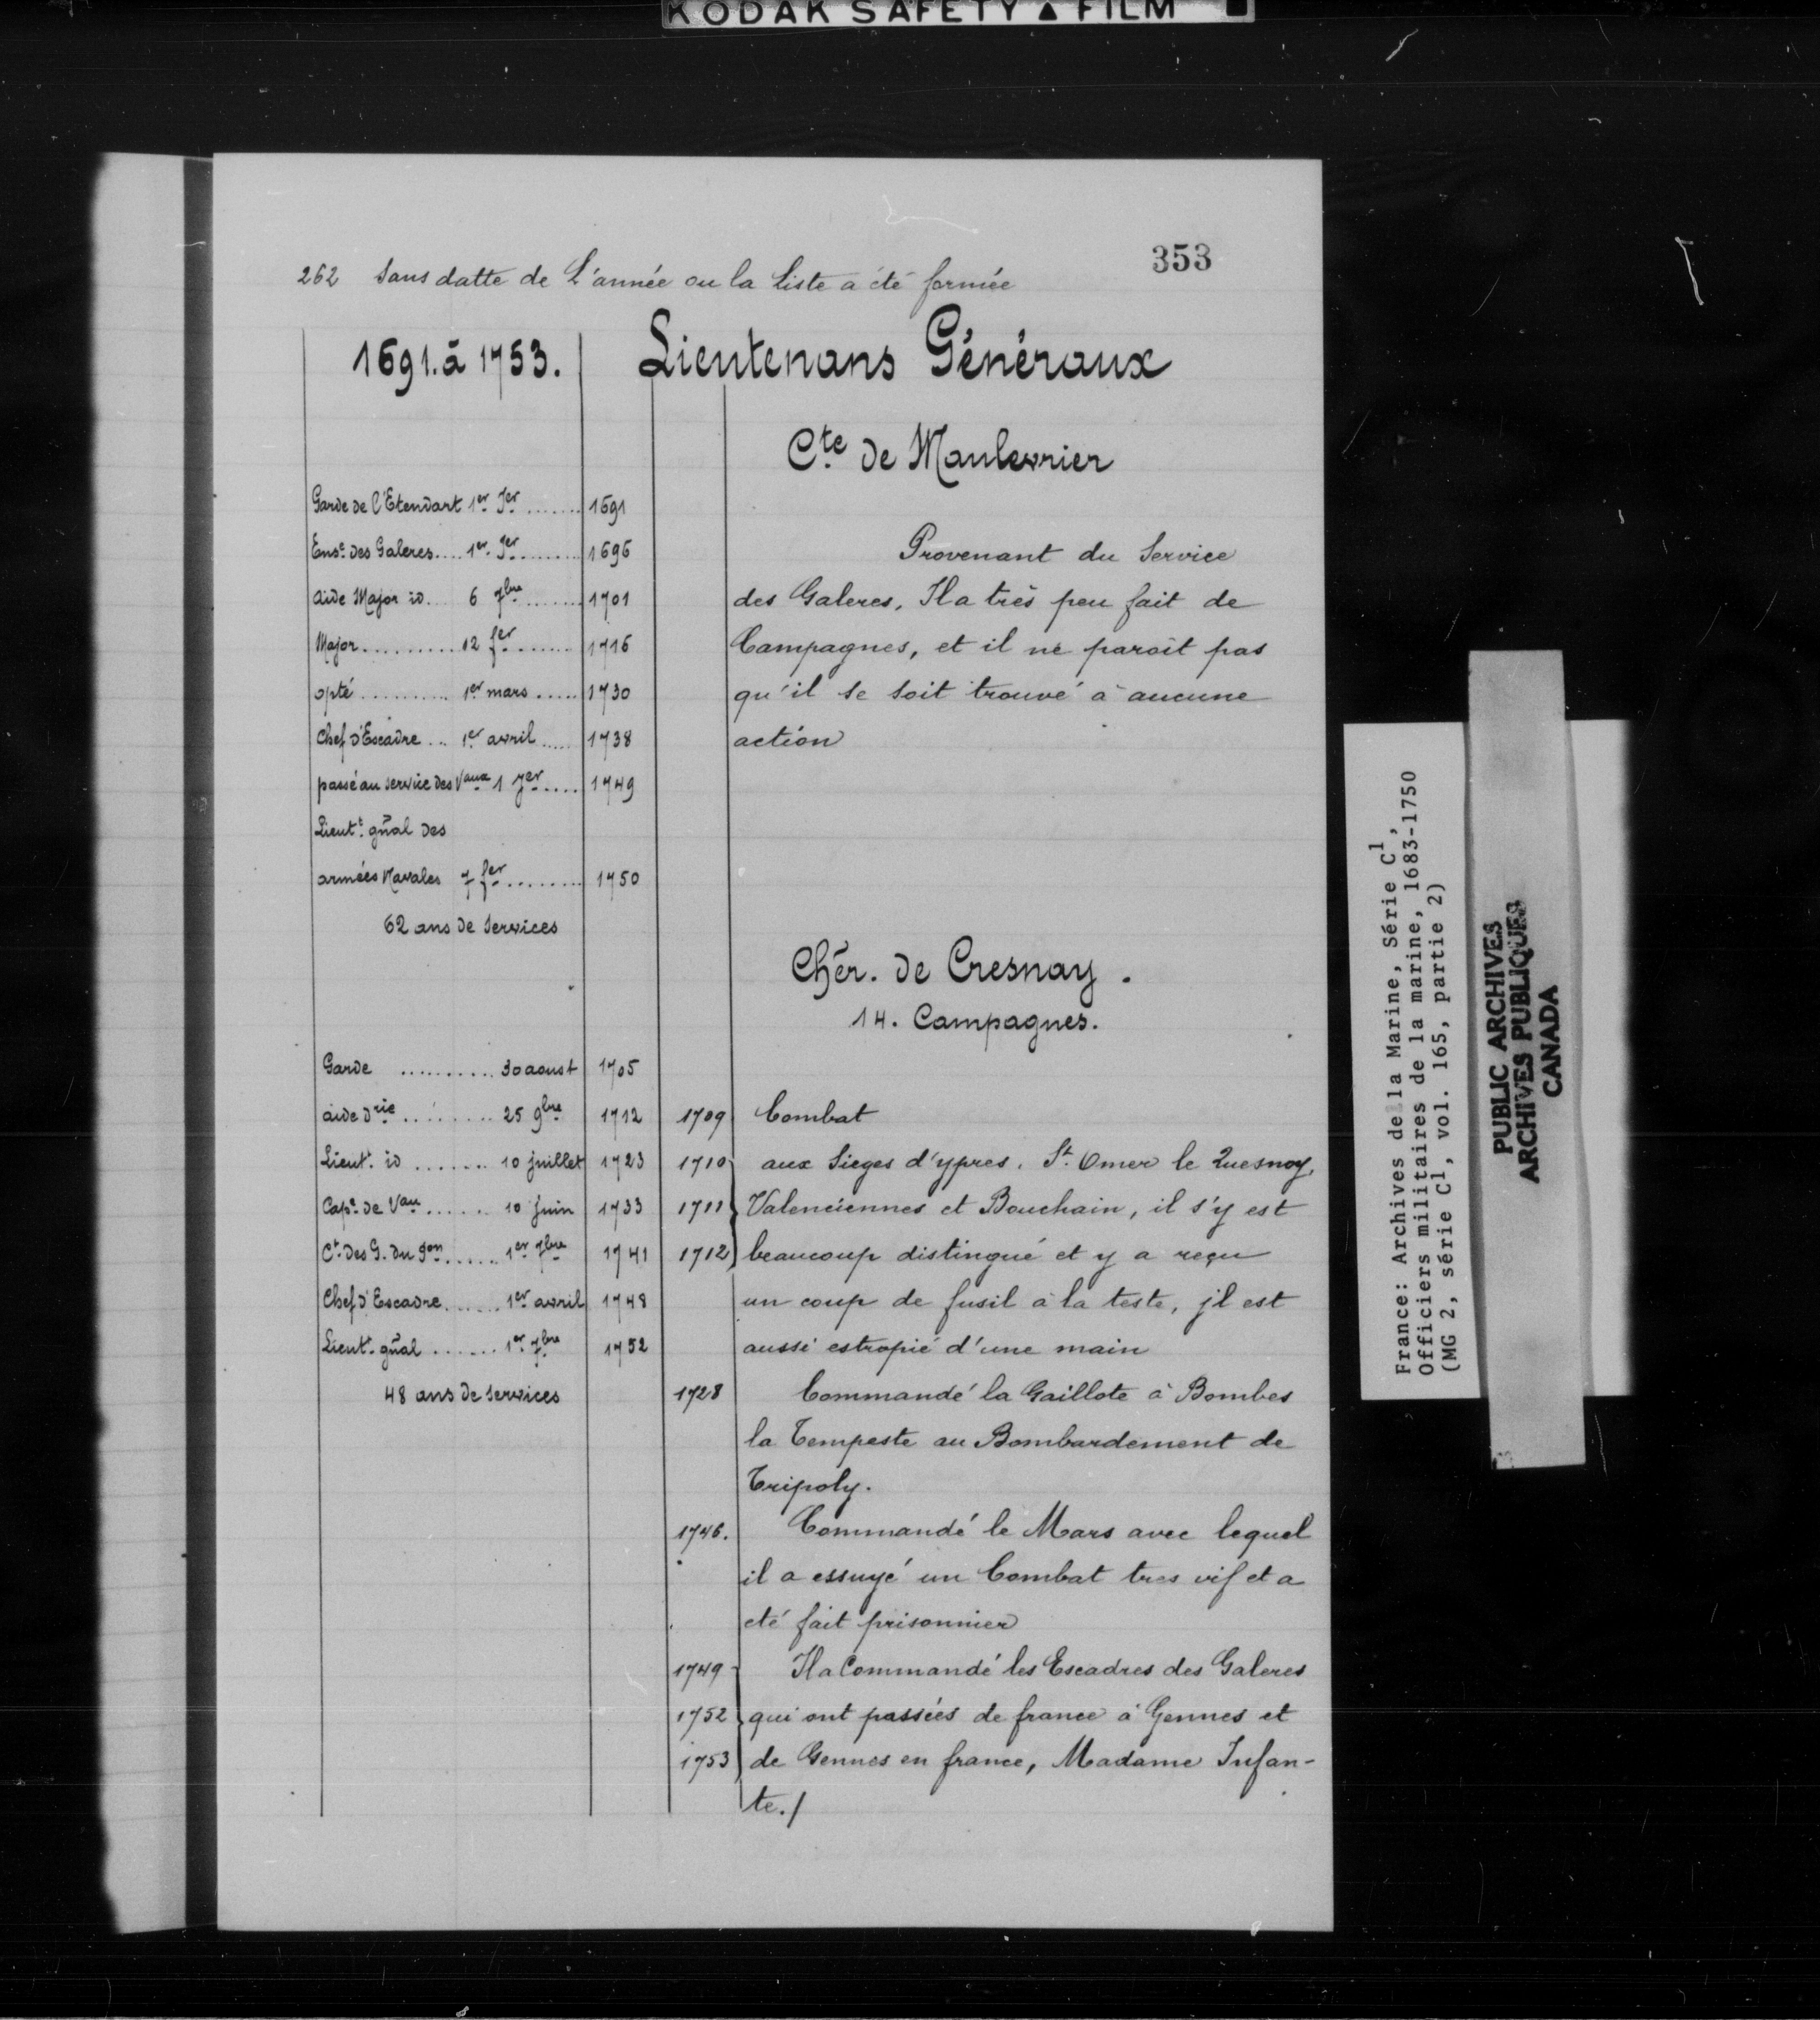 KODAK SAFETY ▲ FILM
353
262 Sans datte de L'année ou la Liste a été formée
1691. à 1753. Lieutenans Généraux
Cte de Maulevrier
Garde de l'Etendart 1er Jer ....... 1691
Ense des Galeres.... 1er Jer ........ 1696
aide Major id. 6 7bre ....... 1701
Major.......... 12 fer ........ 1716
opté .......... 1er mars ..... 1730
Chef d'Escadre ... 1er avril ..... 1738
passé au service des Vaux 1 Jer .... 1749
Lieutt gñal des
armées Navales 7 fer ........ 1750
62 ans de Services
Provenant du Service
des Galeres, Il a très peu fait de
Campagnes, et il ne paroit pas
qu'il se soit trouvé à aucune
action
Chēr. de Cresnay.
14. Campagnes.
Garde .......... 30 aoust 1705
aide drie ......... 25 9bre 1712
Lieutt id ....... 10 juillet 1723
Cape de Vau ...... 10 juin 1733
Ct des G. du Pon ...... 1er 7bre 1741
Chef d'Escadre ....... 1er avril 1748
Lieutt gñal ....... 1er 7bre 1752
48 ans de Services
1709 Combat
1710 aux Sieges d'ypres, St Omer le Quesnoy,
1711 Valenciennes et Bouchain, il s'y est
1712 beaucoup distingué et y a reçu
un coup de fusil à la teste, jl est
aussi estropié d'une main
1728 Commandé la Gaillote à Bombes
la Tempeste au Bombardement de
Tripoly.
1746. Commandé le Mars avec lequel
il a essuyé un Combat tres vif et a
eté fait prisonnier
1749 Il a Commandé les Escadres des Galeres
1752 qui ont passées de france à Gennes et
1753 de Gennes en france, Madame Infan-
te./
France: Archives de la Marine, Série C1,
Officiers militaires de la marine, 1683-1750
(MG 2, série C1, vol. 165, partie 2)
PUBLIC ARCHIVES
ARCHIVES PUBLIQUES
CANADA